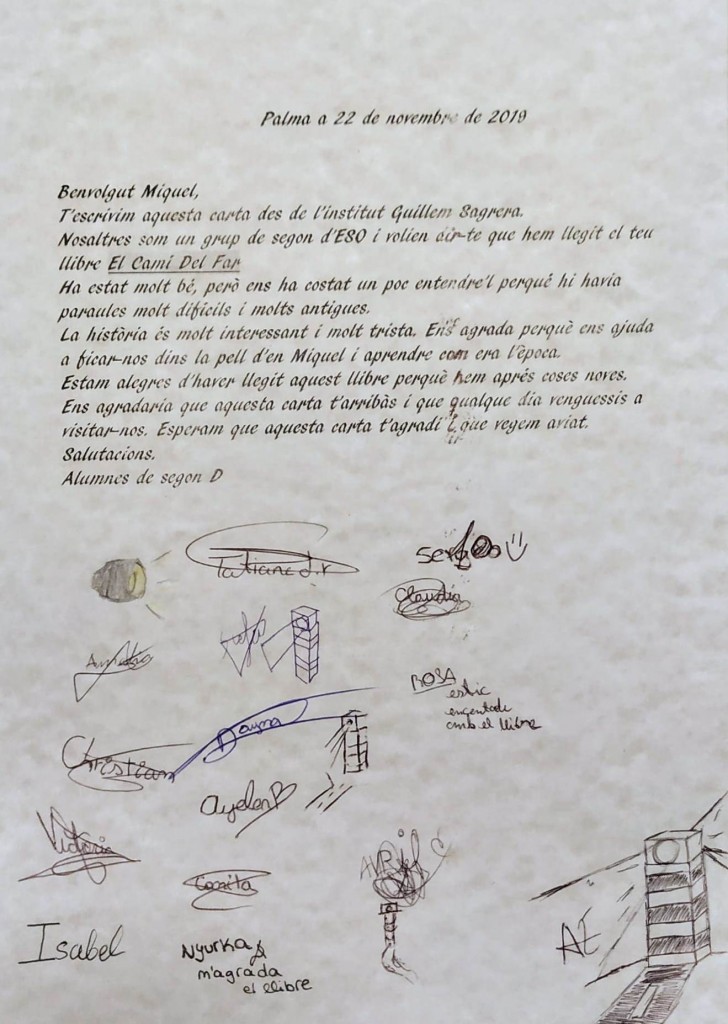 Palma a 22 de novembre de 2019
Benvolgut Miquel,
T'escrivim aquesta carta des de l'institut Guillem Sagrera.
Nosaltres som un grup de segon d'ESO i volien dir-te que hem llegit el teu
llibre El Camí Del Far
Ha estat molt bé, però ens ha costat un poc entendre'l perquè hi havia
paraules molt difícils i molts antigues.
La història és molt interessant i molt trista. Ens agrada perquè ens ajuda
a ficar-nos dins la pell d'en Miquel i aprendre com era l'època.
Estam alegres d'haver llegit aquest llibre perquè hem aprés coses noves.
Ens agradaria que aquesta carta t'arribàs i que qualque dia venguessis a
visitar-nos. Esperam que aquesta carta t'agradi i que vegem aviat.
Salutacions.
Alumnes de segon D
Claudia
ROSA
estic
encentade
amb el llibre
Dayna
Christiam
Ayelen
Victoria
Isabel
Nyurka
m'agrada
el llibre
AE